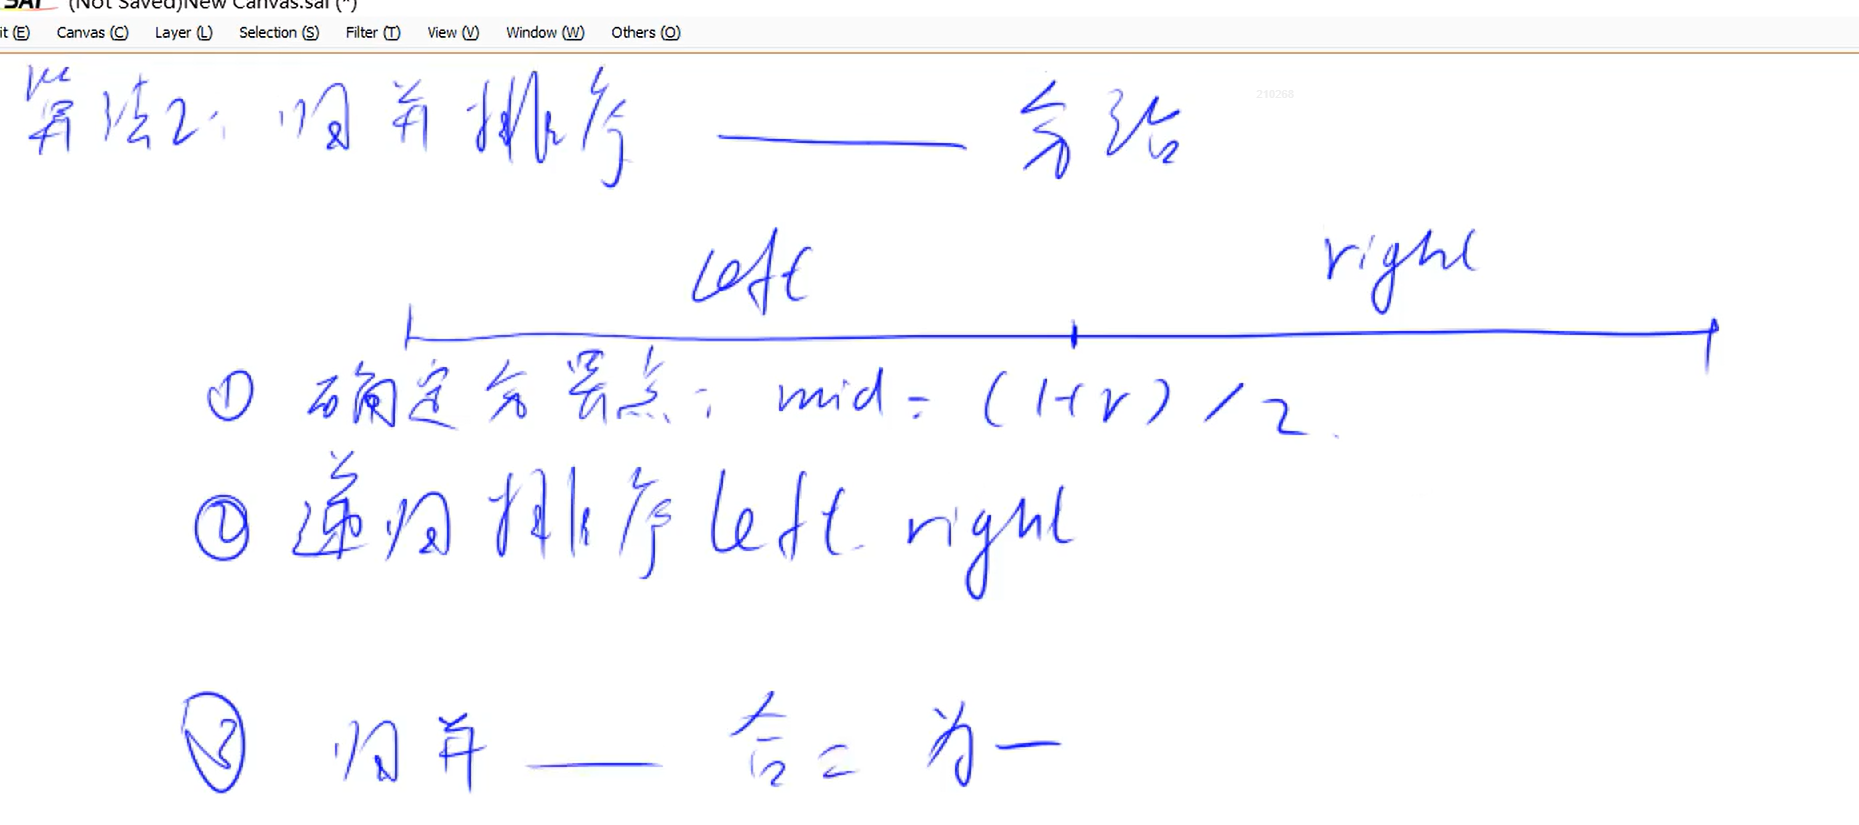 SAI (Not Saved)New Canvas.sai (*)
it (E) Canvas (C) Layer (L) Selection (S) Filter (T) View (V) Window (W) Others (O)
算法2: 归并排序 —— 分治
210268
left right
① 确定分界点: mid = (l+r) / 2.
② 递归排序 left right
③ 归并 —— 合二为一